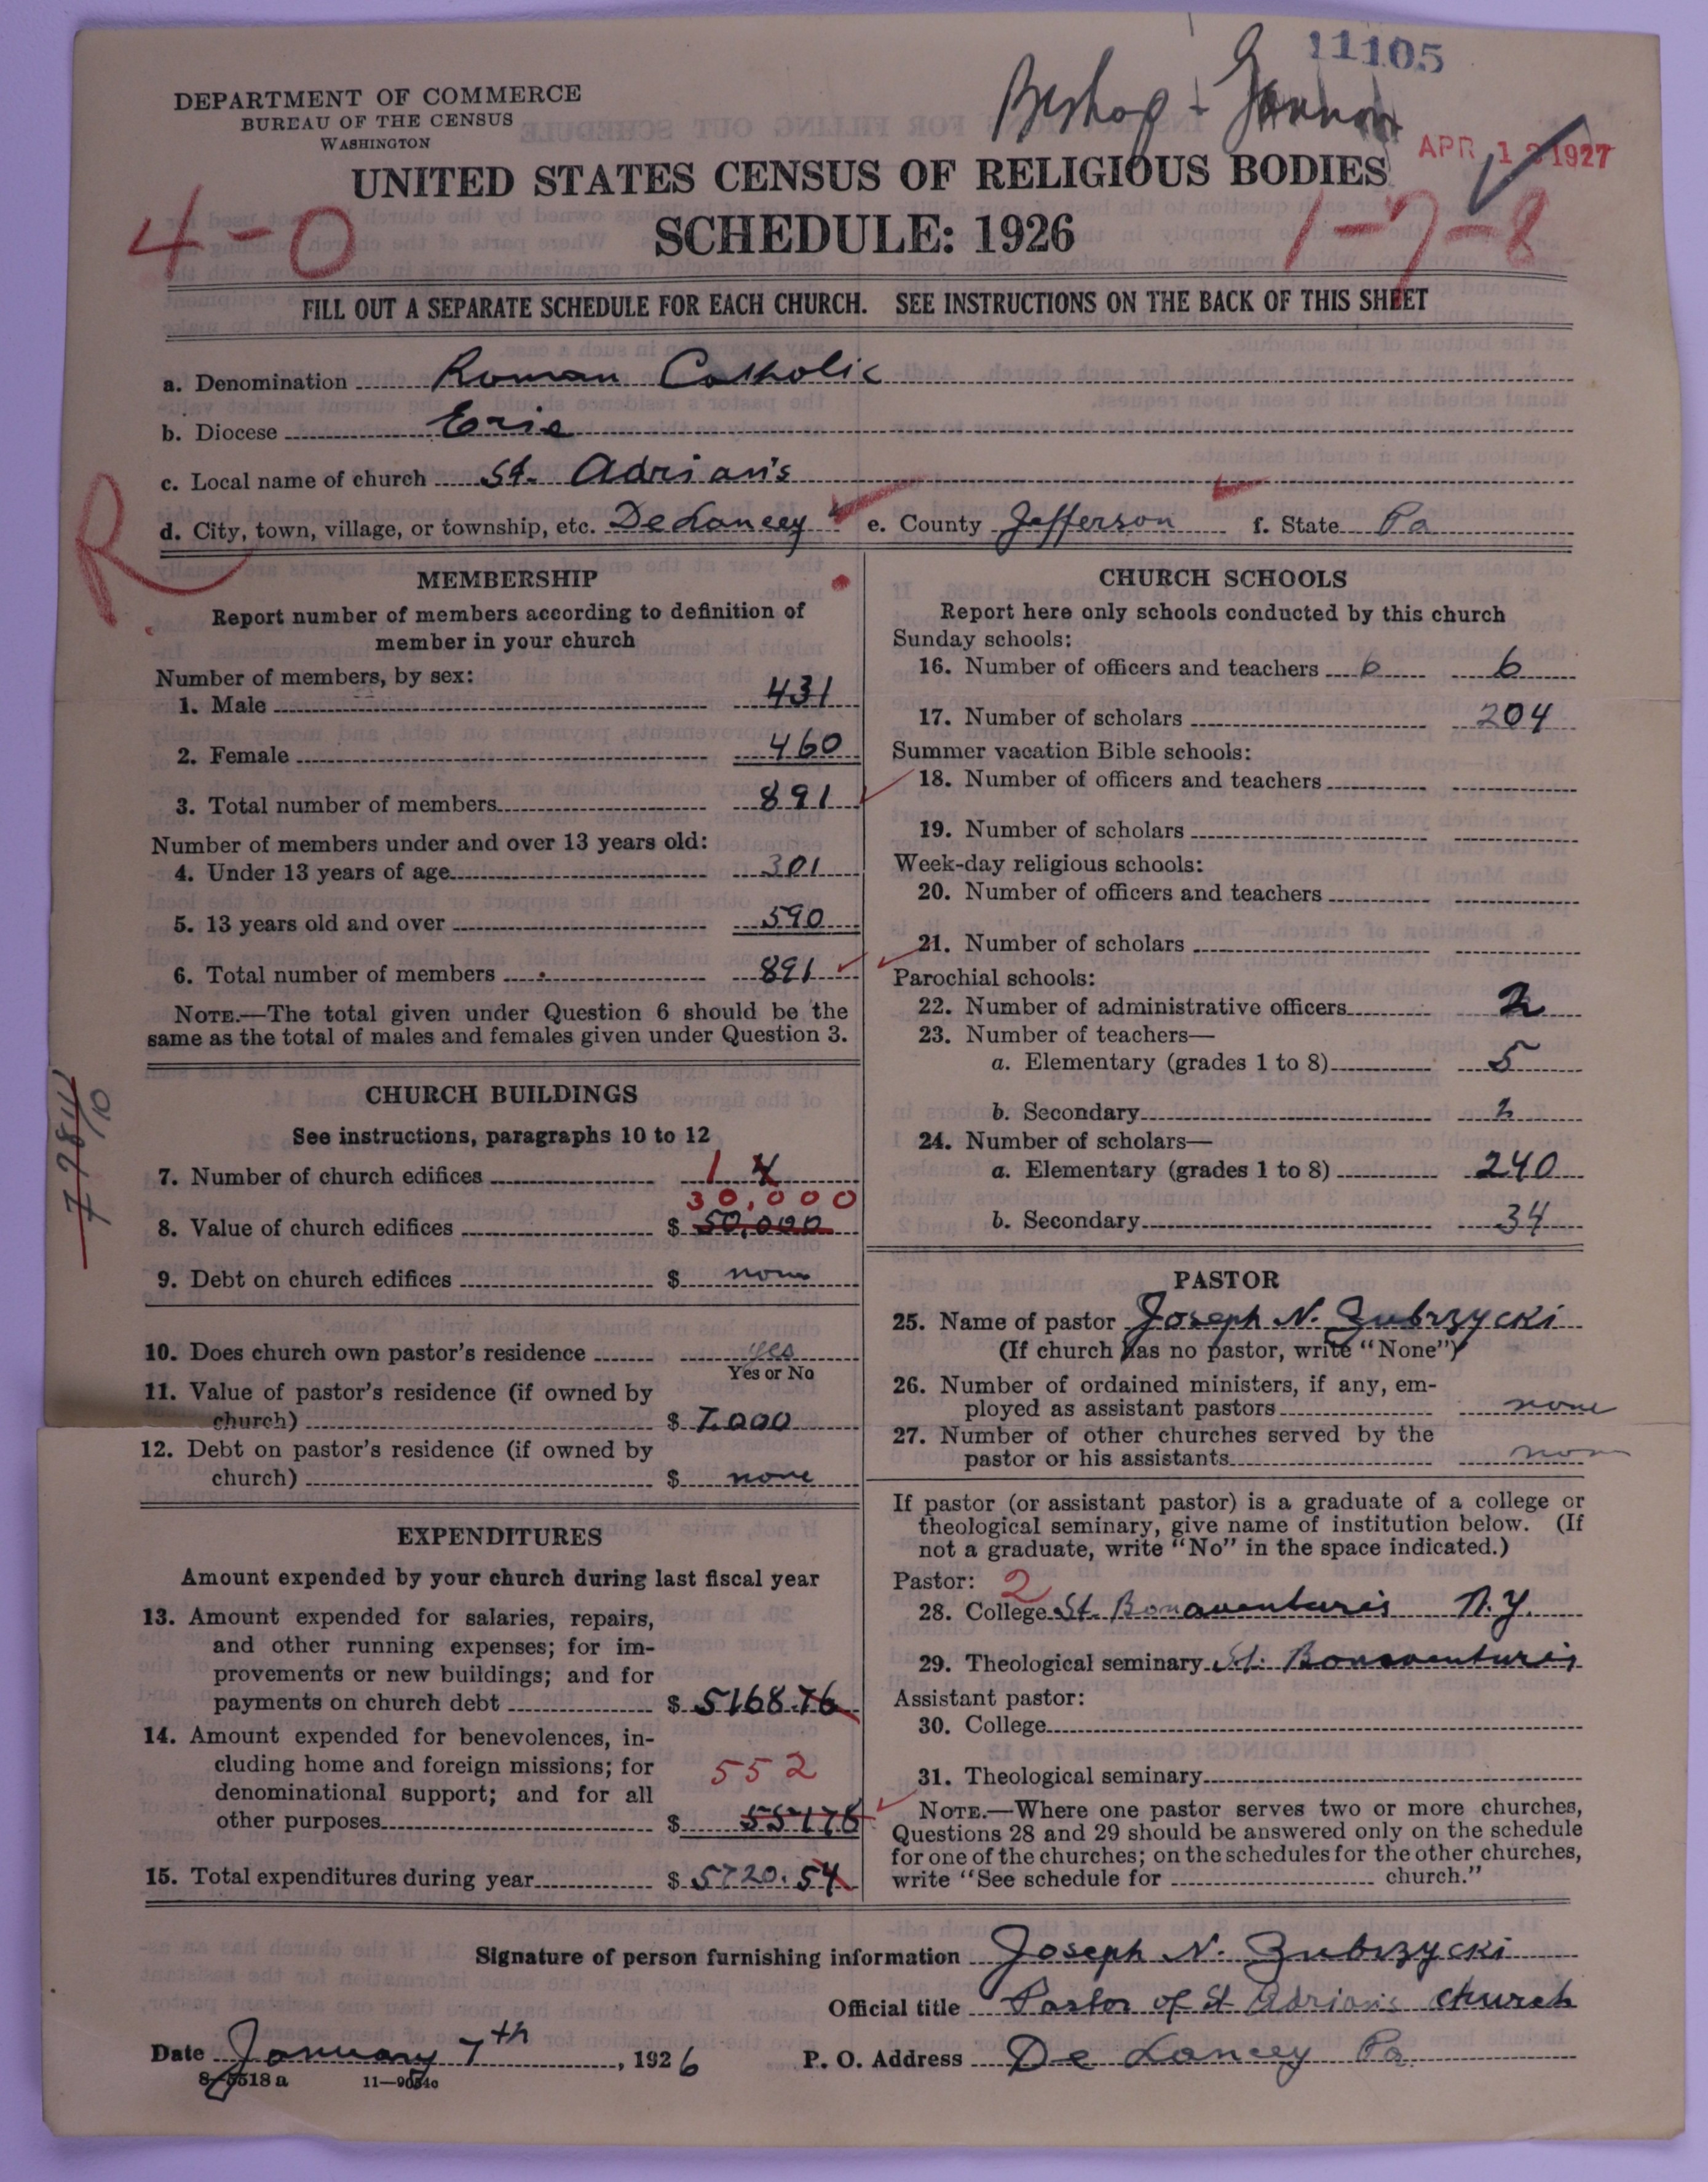 11105
Bishop - Gannon
DEPARTMENT OF COMMERCE
BUREAU OF THE CENSUS
WASHINGTON
APR 1 1927
UNITED STATES CENSUS OF RELIGIOUS BODIES
4-0
SCHEDULE: 1926
1-7-8
FILL OUT A SEPARATE SCHEDULE FOR EACH CHURCH. SEE INSTRUCTIONS ON THE BACK OF THIS SHEET
a. Denomination Roman Catholic
b. Diocese Erie
c. Local name of church St. Adrian's
d. City, town, village, or township, etc. DeLancey e. County Jefferson f. State Pa
R
MEMBERSHIP
Report number of members according to definition of
member in your church
Number of members, by sex:
1. Male 431
2. Female 460
3. Total number of members 891
Number of members under and over 13 years old:
4. Under 13 years of age 301
5. 13 years old and over 590
6. Total number of members 891
NOTE.—The total given under Question 6 should be the
same as the total of males and females given under Question 3.
CHURCH BUILDINGS
See instructions, paragraphs 10 to 12
7. Number of church edifices 1 4
30,000
8. Value of church edifices $ 50,000
9. Debt on church edifices $ none
10. Does church own pastor's residence yes
Yes or No
11. Value of pastor's residence (if owned by
church) $ 7.000
12. Debt on pastor's residence (if owned by
church) $ none
EXPENDITURES
Amount expended by your church during last fiscal year
13. Amount expended for salaries, repairs,
and other running expenses; for im-
provements or new buildings; and for
payments on church debt $ 5168.76
14. Amount expended for benevolences, in-
cluding home and foreign missions; for
denominational support; and for all
552
other purposes $ 551 78
15. Total expenditures during year $ 5720.54
CHURCH SCHOOLS
Report here only schools conducted by this church
Sunday schools:
16. Number of officers and teachers 6 6
17. Number of scholars 204
Summer vacation Bible schools:
18. Number of officers and teachers
19. Number of scholars
Week-day religious schools:
20. Number of officers and teachers
21. Number of scholars
Parochial schools:
22. Number of administrative officers 2
23. Number of teachers—
a. Elementary (grades 1 to 8) 5
b. Secondary 2
24. Number of scholars—
a. Elementary (grades 1 to 8) 240
b. Secondary 34
PASTOR
25. Name of pastor Joseph N. Zubrzycki
(If church has no pastor, write "None")
26. Number of ordained ministers, if any, em-
ployed as assistant pastors none
27. Number of other churches served by the
pastor or his assistants non
If pastor (or assistant pastor) is a graduate of a college or
theological seminary, give name of institution below. (If
not a graduate, write "No" in the space indicated.)
Pastor: 2
28. College St. Bonaventuris N.Y.
29. Theological seminary St. Bonaventuris
Assistant pastor:
30. College
31. Theological seminary
NOTE.—Where one pastor serves two or more churches,
Questions 28 and 29 should be answered only on the schedule
for one of the churches; on the schedules for the other churches,
write "See schedule for church."
Signature of person furnishing information Joseph N. Zubrzycki
Official title Pastor of St Adrian's church
Date January 7th, 1926 P. O. Address De Lancey Pa
8-5518a 11-9054c